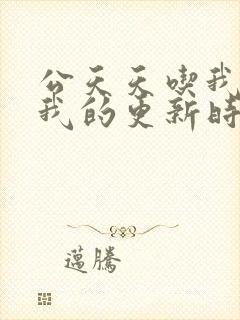 公天天喫我
我的更新時
邁騰